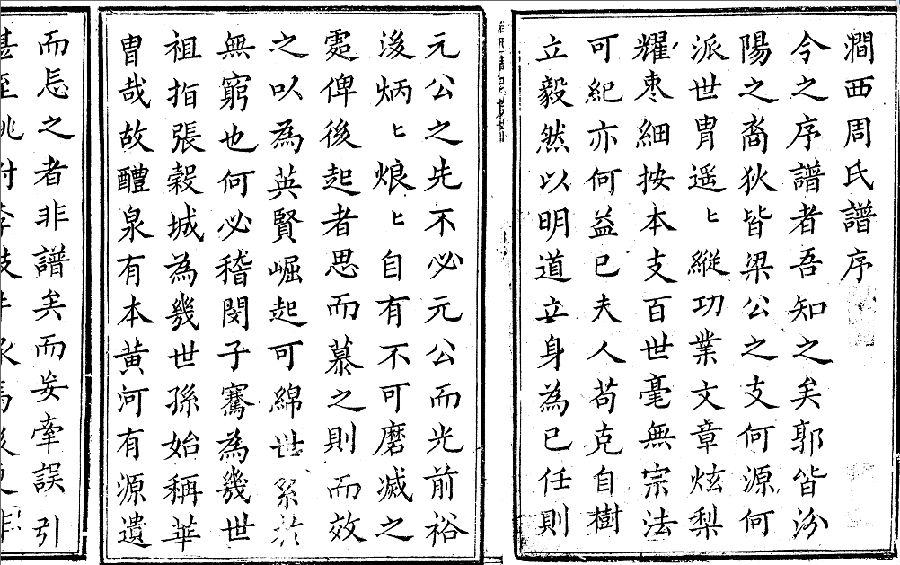 澗西周氏譜序
今之序譜者吾知之矣郭皆汾
陽之裔狄皆梁公之支何源何
派世胄遥〻縱功業文章炫梨
耀棗細按本支百世毫無宗法
可紀亦何益已夫人苟克自樹
立毅然以明道立身為已任則
元公之先不必元公而光前裕
後炳〻烺〻自有不可磨滅之
霓俾後起者思而慕之則而效
之以為英賢崛起可綿世系於
無窮也何必稽閔子騫為幾世
祖指張穀城為幾世孫始稱華
胄哉故醴泉有本黄河有源遺
而忘之者非譜矣而妄牽誤引
甚至